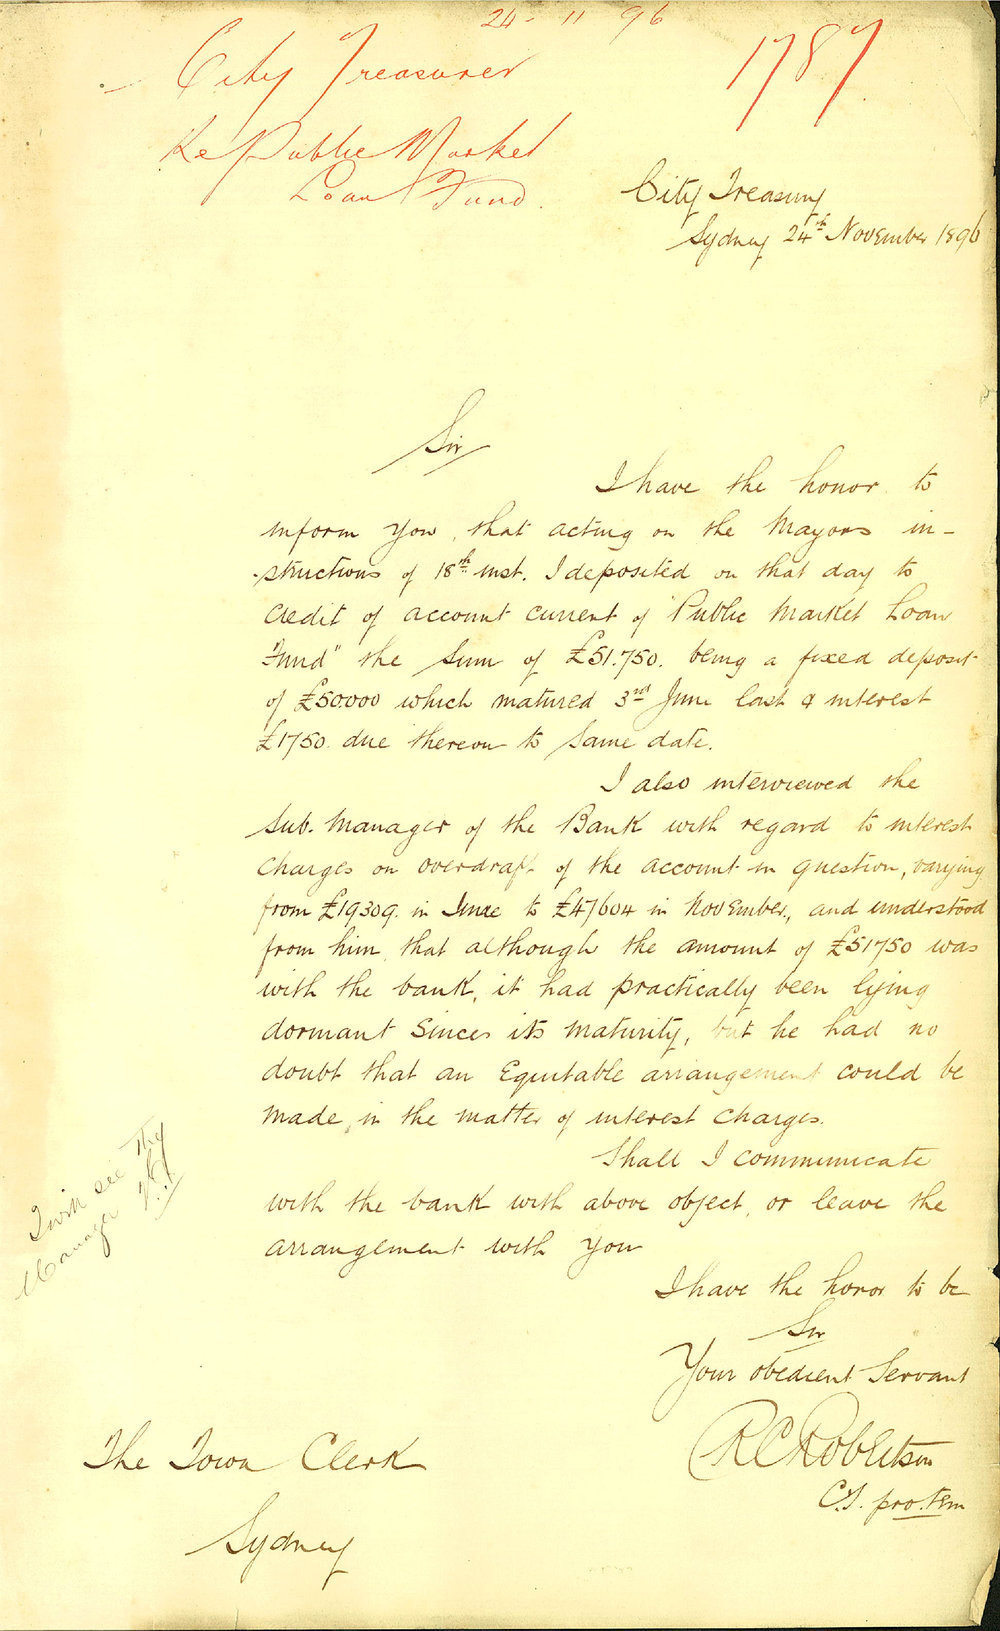 24-11 96
City Treasurer
1787
Re Public Market
Loan Fund.
City Treasury
Sydney 24th November 1896
Sir
I have the honor to
inform you, that acting on the Mayors in-
-structions of 18th inst. I deposited on that day to
credit of account current of "Public Market Loan
Fund" the sum of £51.750. being a fixed deposit
of £50.000 which matured 3rd June last & interest
£1750. due thereon to same date.
I also interviewed the
Sub-Manager of the Bank with regard to interest
charges on overdraft of the account in question, varying
from £19309. in June to £47604 in November, and understood
from him, that although the amount of £51750 was
with the bank, it had practically been lying
dormant since its maturity, but he had no
doubt that an Equitable arrangement could be
made, in the matter of interest charges.
Shall I communicate
with the bank with above object, or leave the
arrangement with you
I have the honor to be
Sir
Your obedient Servant
R C Robertson
C.T. pro. tem
The Town Clerk
Sydney
I will see the
Manager